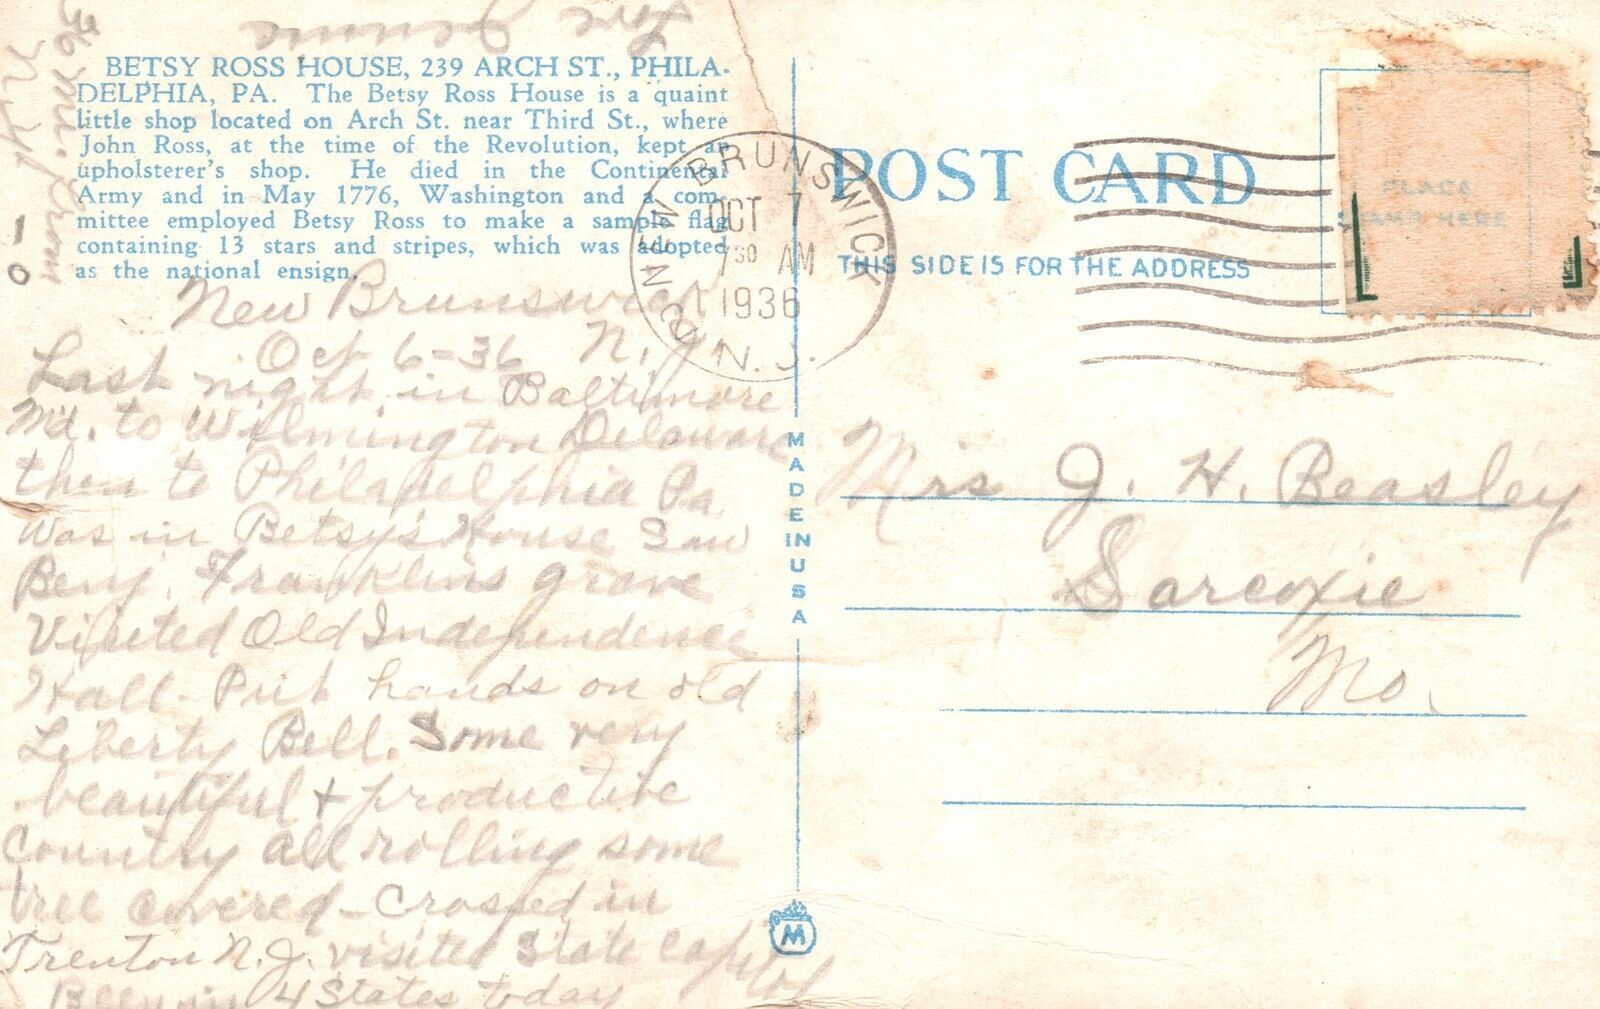 BETSY ROSS HOUSE, 239 ARCH ST., PHILA-
DELPHIA, PA. The Betsy Ross House is a quaint
little shop located on Arch St. near Third St., where
John Ross, at the time of the Revolution, kept an
upholsterer's shop. He died in the Continental
Army and in May 1776, Washington and a com-
mittee employed Betsy Ross to make a sample flag
containing 13 stars and stripes, which was adopted
as the national ensign.
New Brunswick
Oct 6-36 N.J
Last night in Baltimore
Md. to Wilmington Delaware
then to Philadelphia Pa.
Was in Betsy's House Saw
Benj. Franklins grave
Visited Old Independence
Hall. Put hands on old
Liberty Bell. Some very
beautiful + productive
Country all rolling some
tree covered - Crossed in
Trenton N.J. visited State Capitol
Been in 4 States today
36 mi. from
N.Y.
Love
NEW BRUNSWICK
OCT 7
7 30 AM
1936
N.J.
POST CARD
THIS SIDE IS FOR THE ADDRESS
PLACE
STAMP HERE
MADE IN USA
M
Mrs J. H. Beasley
Sarcoxie
Mo.